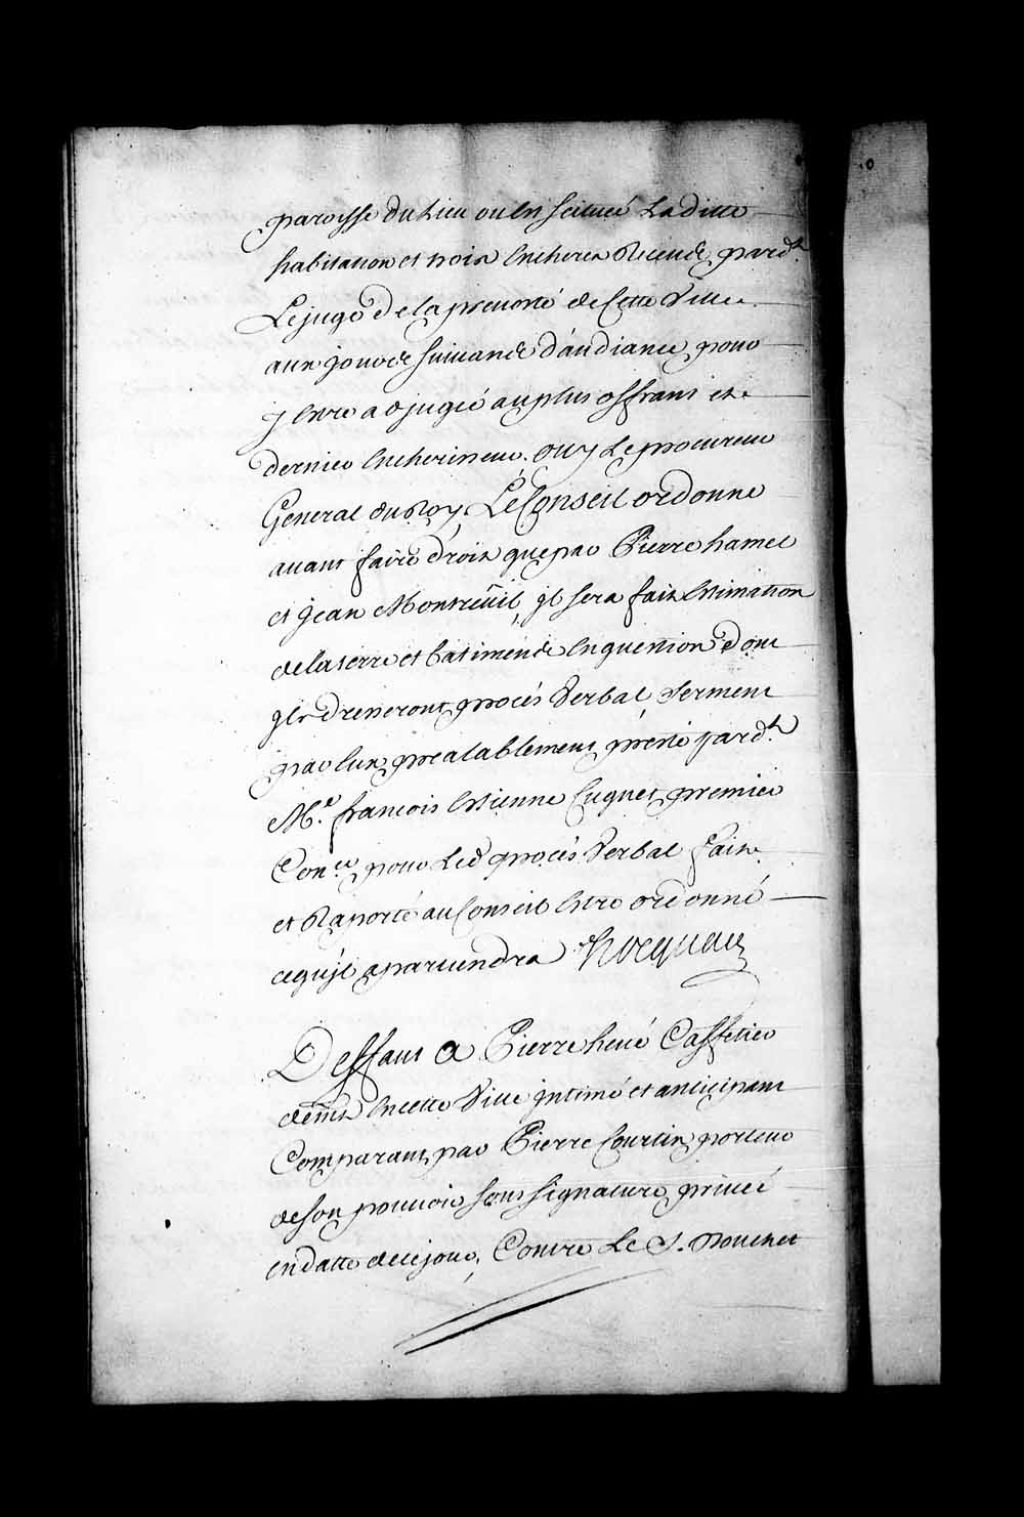 paroisse du Lieu ou est scituée Laditte
habitation et trois Encheres Receües pard.t
Le juge de la prevosté de Cette Ville
aux jours suivans d'audiance, pour
y Estre adjugée au plus offrant et
dernier Encherisseur. Ouy Le procureur
General du Roy, Le Conseil ordonne
avant faire droit que par Pierre hamel
et jean Montreüil, jl sera fait Estimation
de la terre et batimens En question dont
jls dresseront procés Verbal, serment
par Eux prealablement presté pard.t
M.e françois Estienne Cugnet premier
Con.er pour Led procés Verbal fait
et Raporté au Conseil Estre ordonné
ce qu'jl apartiendra Hocquart
Deffaut a Pierre hevé Caffetier
dem.t En cette Ville jntimé et anticipant
Comparant par Pierre Courtin porteur
de son pouvoir sous signature privée
en datte de ce jour, Contre Le S. Nouchet